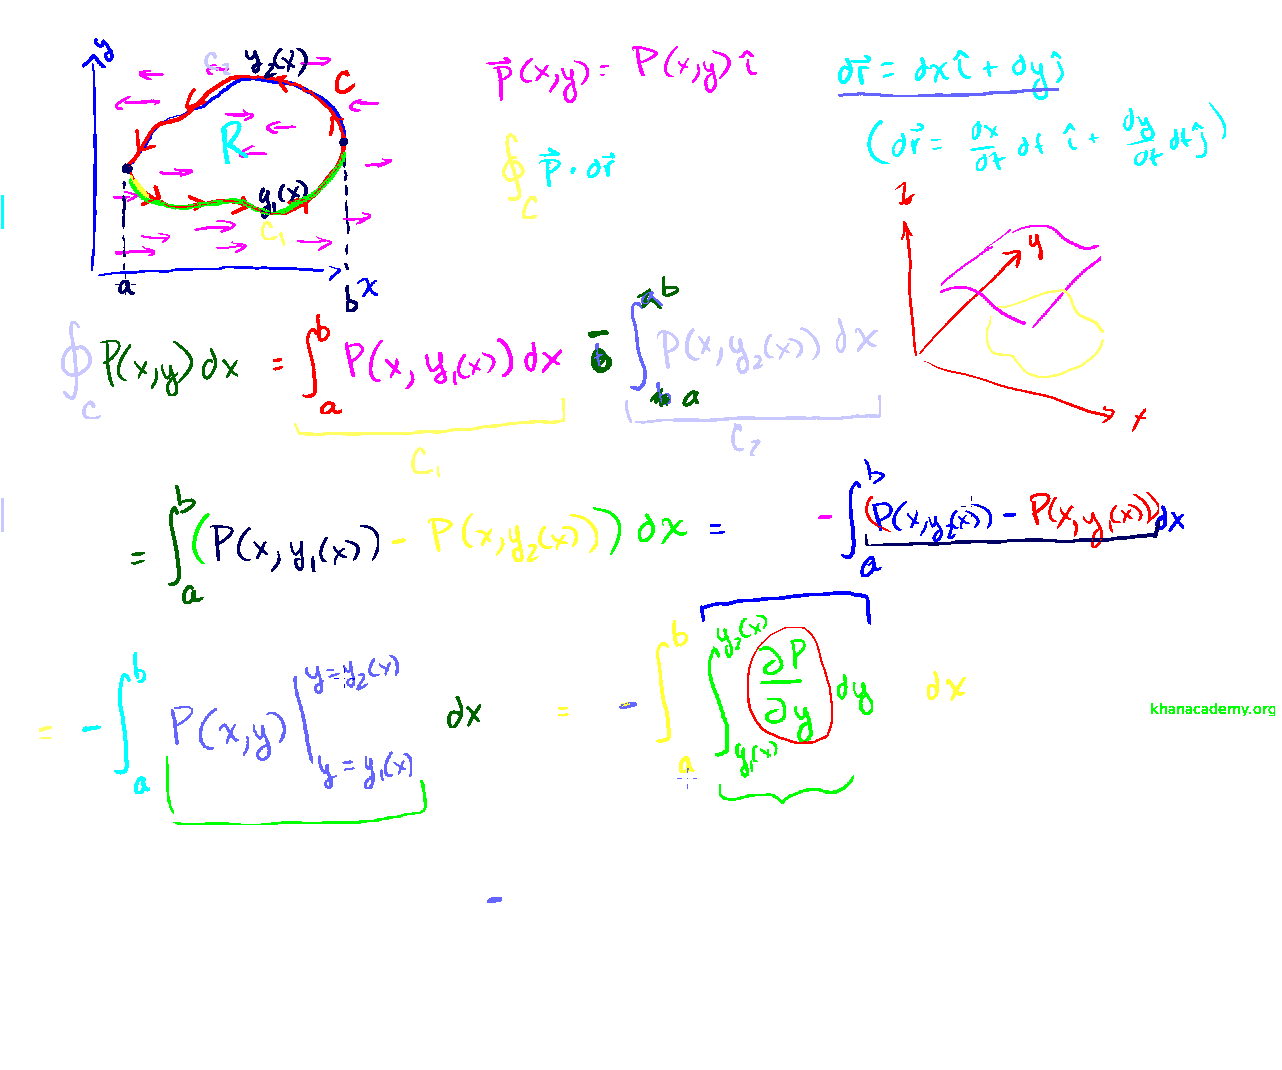 y
C₂
y₂(x)
C
R
y₁(x)
C₁
a
b
x
P⃗(x,y) = P(x,y) î
dr⃗ = dx î + dy ĵ
∮_C P⃗ · dr⃗
(dr⃗ = dx/dt dt î + dy/dt dt ĵ)
z
y
x
∮_C P(x,y) dx = ∫_a^b P(x, y₁(x)) dx − ∫_a^b P(x, y₂(x)) dx
C₁
C₂
= ∫_a^b (P(x, y₁(x)) − P(x, y₂(x))) dx = − ∫_a^b (P(x, y₂(x)) − P(x, y₁(x))) dx
= − ∫_a^b P(x,y) |_{y = y₁(x)}^{y = y₂(x)} dx = − ∫_a^b ∫_{y₁(x)}^{y₂(x)} ∂P/∂y dy dx
khanacademy.org
−